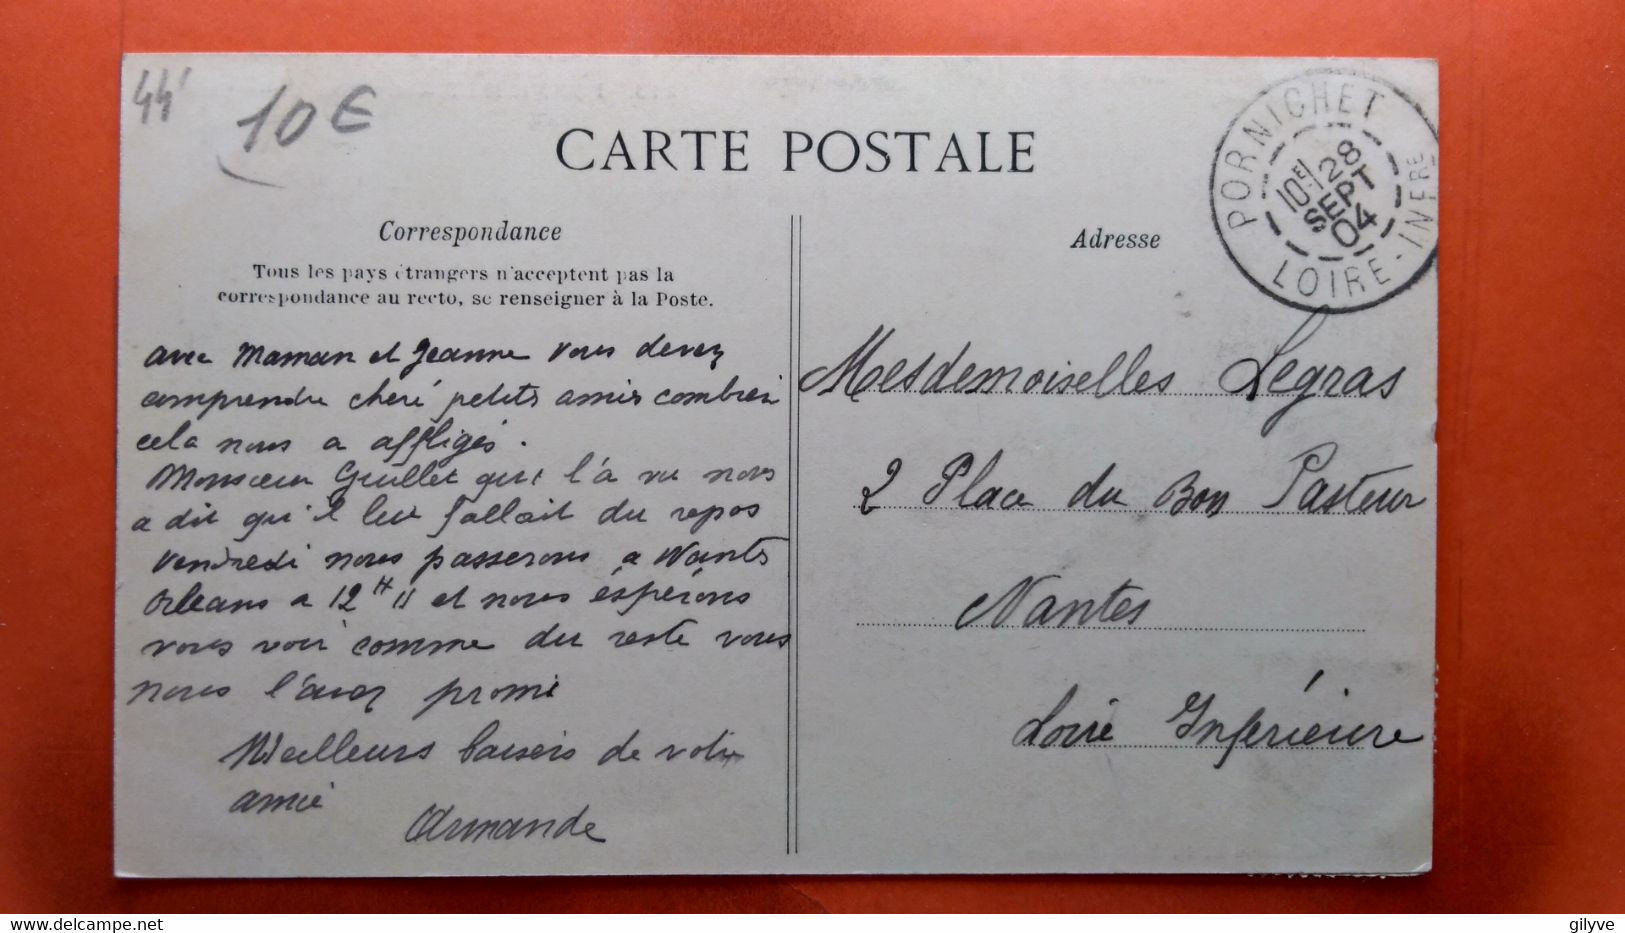 44
10€
CARTE POSTALE
PORNICHET
LOIRE-INFRE
10E/28
SEPT
04
Correspondance
Tous les pays étrangers n'acceptent pas la
correspondance au recto, se renseigner à la Poste.
avec Maman et Jeanne vous devez
comprendre cheré petits amies combien
cela nous a affligés.
Monsieur Guillet qui l'a vu nous
a dit qu'il leur fallait du repos
vendredi nous passerons a Nants
Orleans a 12H 11 et nous éspérons
vous voir comme du reste vous
nous l'avez promi
Meilleurs baisers de votre
amie
Armande
Adresse
Mesdemoiselles Legras
2 Place du Bon Pasteur
Nantes
Loire Inférieure
delcampe.net
gilyve